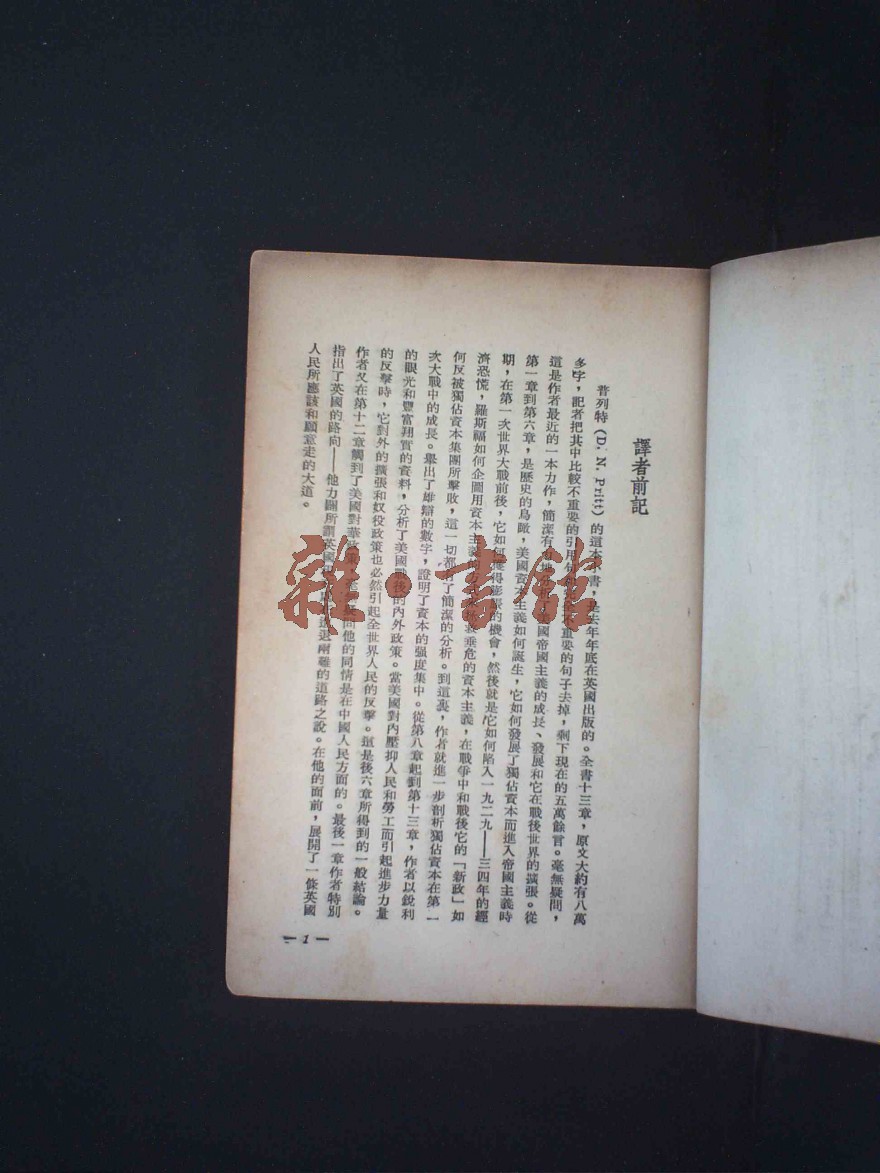 譯者前記
普列特(D. N. Pritt)的這本書,是去年年底在英國出版的。全書十三章,原文大約有八萬
多字,記者把其中比較不重要的引用句和不重要的句子去掉,剩下現在的五萬餘言。毫無疑問,
這是作者最近的一本力作,簡潔有國帝國主義的成長、發展和它在戰後世界的擴張。從
第一章到第六章,是歷史的鳥瞰,美國資本主義如何誕生,它如何發展了獨佔資本而進入帝國主義時
期,在第一次世界大戰前後,它如何獲得膨脹的機會,然後就是它如何陷入一九二九——三四年的經
濟恐慌,羅斯福如何企圖用資本主義的方垂危的資本主義,在戰爭中和戰後它的「新政」如
何反被獨佔資本集團所擊敗,這一切都有了簡潔的分析。到這裏,作者就進一步剖析獨佔資本在第一
次大戰中的成長。舉出了雄辯的數字,證明了資本的強度集中。從第八章起到第十三章,作者以銳利
的眼光和豐富翔實的資料,分析了美國戰後的內外政策。當美國對內壓抑人民和勞工而引起進步力量
的反擊時,它對外的擴張和奴役政策也必然引起全世界人民的反擊。這是後六章所得到的一般結論。
作者又在第十二章觸到了美國對華政策,毫無疑問他的同情是在中國人民方面的。最後一章作者特別
指出了英國的路向——他力闢所謂英國進退兩難的道路之說。在他的面前,展開了一條英國
人民所應該和願意走的大道。
— 1 —
雜·書館